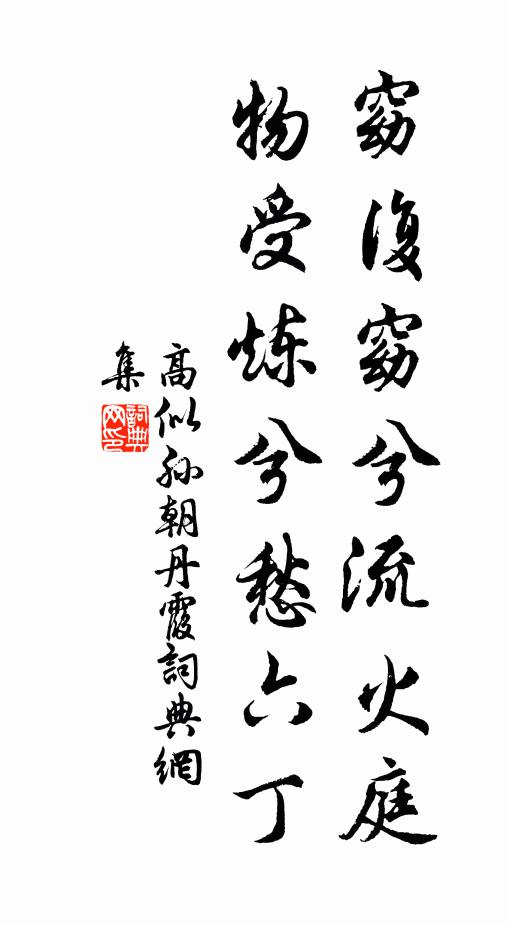 窈復窈兮流火庭
物受炼兮愁六丁
高似孙朝丹霞詞典網
集
詞典
网印